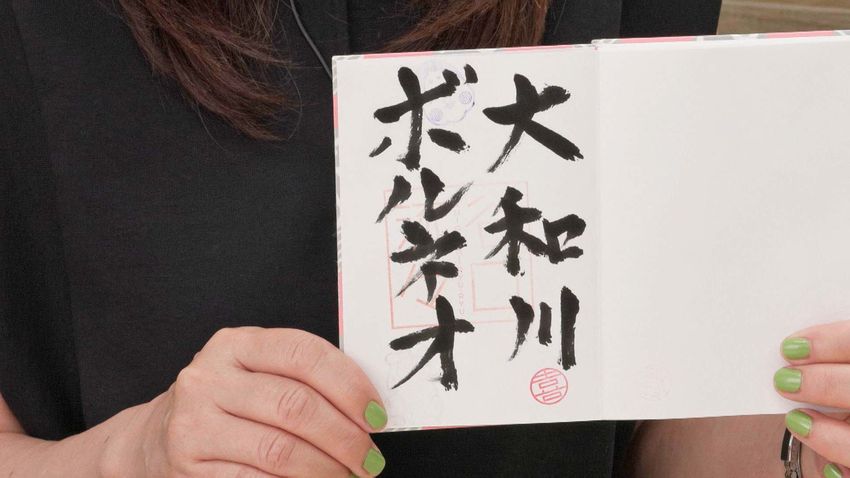 大和川
ボルネオ